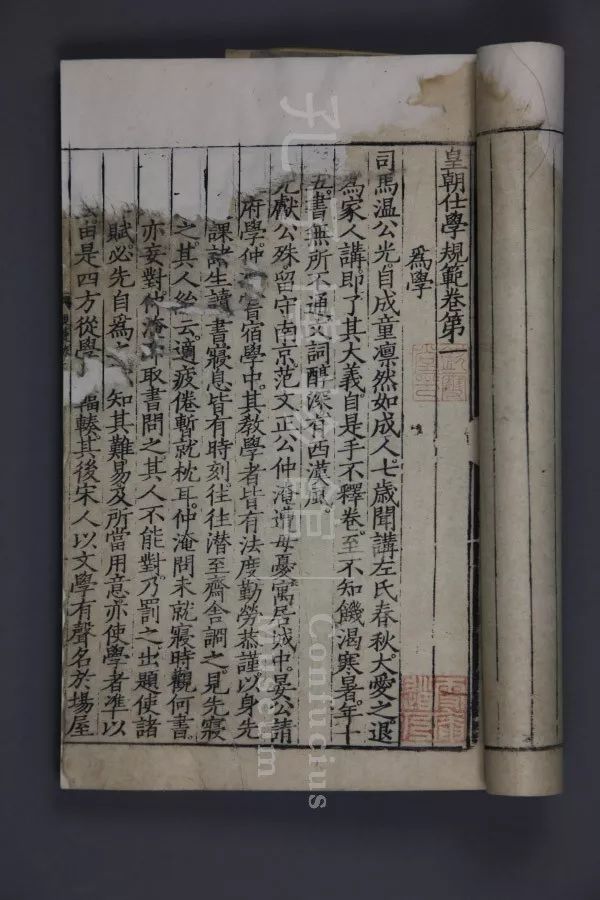 皇朝仕學規範卷第一
爲學
司馬温公光自成童凛然如成人七歳聞講左氏春秋大愛之退
爲家人講即了其大義自是手不釋卷至不知饑渴寒暑年十
五書無所不通文詞醇深有西漢風
元獻公殊留守南京范文正公仲淹遭母憂寓居城中晏公請
府學仲 宿學中其教學者皆有法度勤勞恭謹以身先
課諸生讀書寢息皆有時刻往往潜至齋舎詷之見先寢
之其人紿云適疲倦暫就枕耳仲淹問未就寢時觀何書
亦妄對仲淹 取書問之其人不能對乃罰之出題使諸
賦必先自爲之 知其難易及所當用意亦使學者準以
由是四方從學 輻輳其後宋人以文學有聲名於場屋
孔 博 館 Confucius Museum